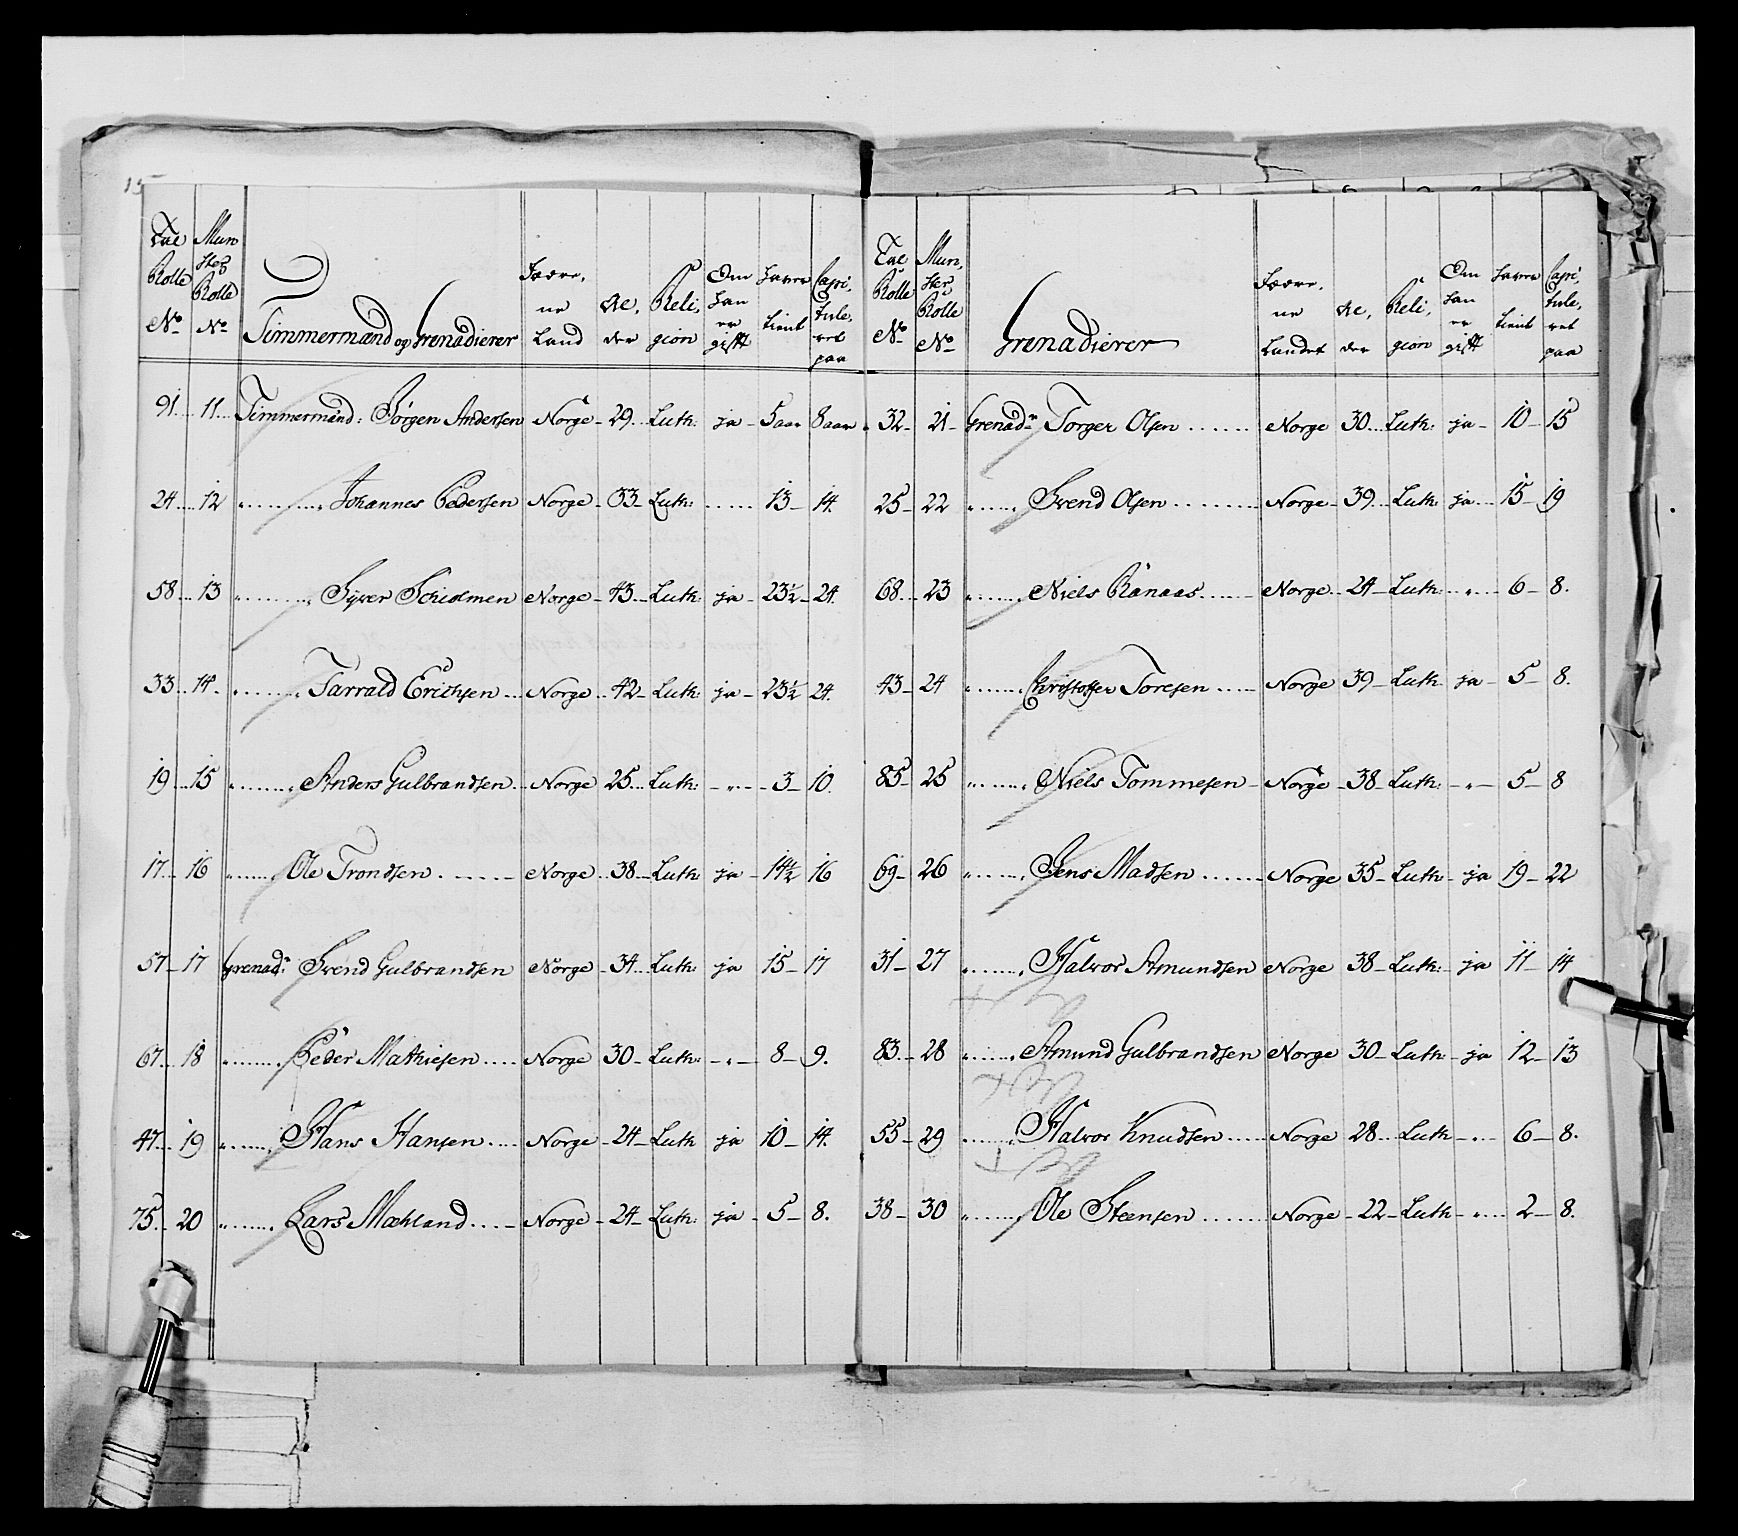 15
Tal Rolle No | Mun ster Rolle No | Timmermænd og Grenadierer | Fædre, ne Land | Al, der | Reli, gion | Om han er gifft | Hafver tient | Capi, tule, ret paa
91 11 Timmermænd: Jörgen Andersen Norge 29 Luth: ja 5 aar 8 aar
24 12 " Johannes Pedersen Norge 33 Luth: 13 14.
58 13 " Syver Schiedmen Norge 43 Luth: ja 23½ 24.
33 14. " Tarrald Erichsen Norge 42 Luth: ja 23½ 24.
19 15 " Anders Gulbrandsen Norge 25 Luth: " 3 10.
17 16 " Ole Trondsen Norge 38 Luth ja 14½ 16
57 17 Grenad:r Svend Gulbrandsen Norge 34 Luth: ja 15 17
67 18 " Peder Mathiesen Norge 30 Luth: " 8 9.
47 19 " Hans Hansen Norge 24 Luth ja 10 14.
75 20 " Lars Mæhland Norge 24 Luth: ja 5 8.
Tal Rolle No | Mun, ster Rolle No | Grenadierer | Fædre, ne Landet | Al, der | Reli, gion | Om han er gifft | Hafver tient | Capi, tule, ret paa
32 21 Grenad:r Torger Olsen Norge 30 Luth: ja 10 15
25 22 " Svend Olsen Norge 39 Luth: ja 15 19
68 23 " Niels Rånaas Norge 24 Luth: " 6 8.
43 24 " Christoffer Toresen Norge 39 Luth ja 5 8.
85 25 " Niels Tommesen Norge 38 Luth: " 5 8
69 26 " Jens Madsen Norge 35 Luth ja 19 22
31 27 " Halvor Amundsen Norge 38 Luth: ja 11 14
83 28 " Amund Gulbrandsen Norge 30 Luth: ja 12 13
55 29 " Halvor Knudsen Norge 28 Luth " 6 8.
38 30 " Ole Steensen Norge 22 Luth " 2 8.